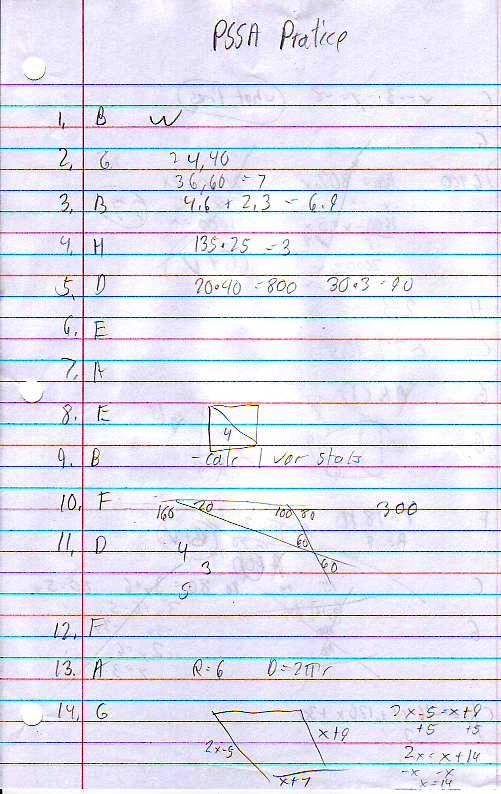 PSSA Pratice
1, B W
2, G 24,40
36,60 = 7
3, B 4.6 + 2.3 = 6.9
4, H 135.25 = 3
5, D 20•40 = 800 30•3 = 90
6. E
7, A
8. E 4
9. B - calc 1 var stats
10. F 160 20 100 80 300
60 60
11, D 4
3
5
12. F
13. A R=6 D=2πr
14, G 2x-5=x+9
x+9 +5 +5
2x-5 2x=x+14
-x -x
x+7 x=14